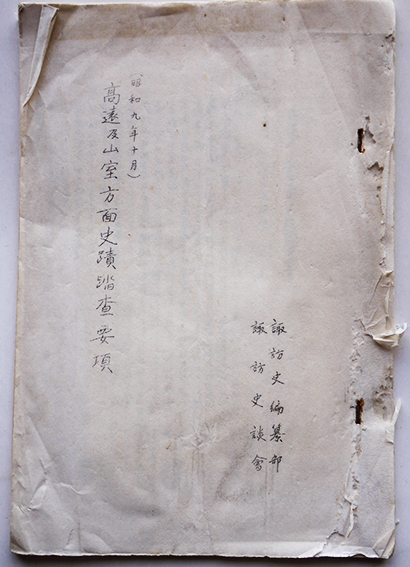 諏訪史編纂部
諏訪史談會
(昭和九年十月)
高遠及山室方面史蹟踏査要項